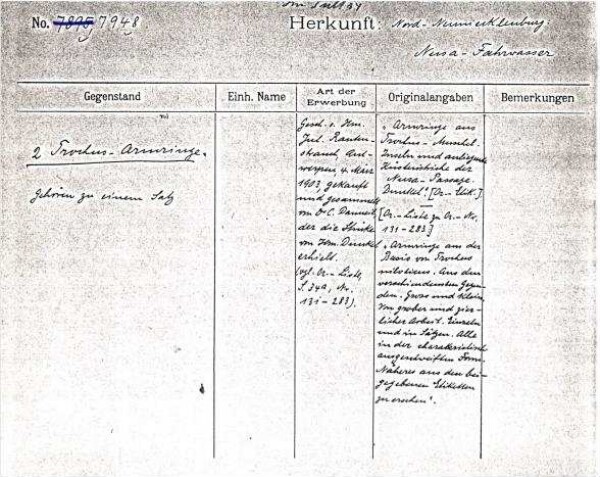 No. 7895 7948
Herkunft: Nord-Neumecklenburg.
Nusa-Fahrwasser
Gegenstand
Einh. Name
Art der Erwerbung
Originalangaben
Bemerkungen
2 Trochus-Armringe.
Gehören zu einem Satz
Gesch. v. Hrn.
Jul. Rauten-
strauch, Ant-
werpen, 4. März
1903, gekauft
und gesammelt
von Dr C. Danneil,
der die Stücke
von Hrn. Dunkel
erhielt.
(vgl. Or.-Liste,
S. 34a, No.
131-283).
"Armringe aus
Trochus-Muschel.
Inseln und anliegende
Küstenstriche der
Nusa-Passage.
Dunkel." [Or.-Etik.]
[Or.-Liste zu Or.-No.
131-283]
"Armringe aus der
Basis von Trochus
niloticus. Aus den
verschiedensten Gegen-
den. Gross und klein,
von grober und zier-
licher Arbeit. Einzeln
und in Sätzen. Alle
in der charakteristisch
ausgeschweiften Form.
Näheres aus den bei-
gegebenen Etiketten
zu ersehen".